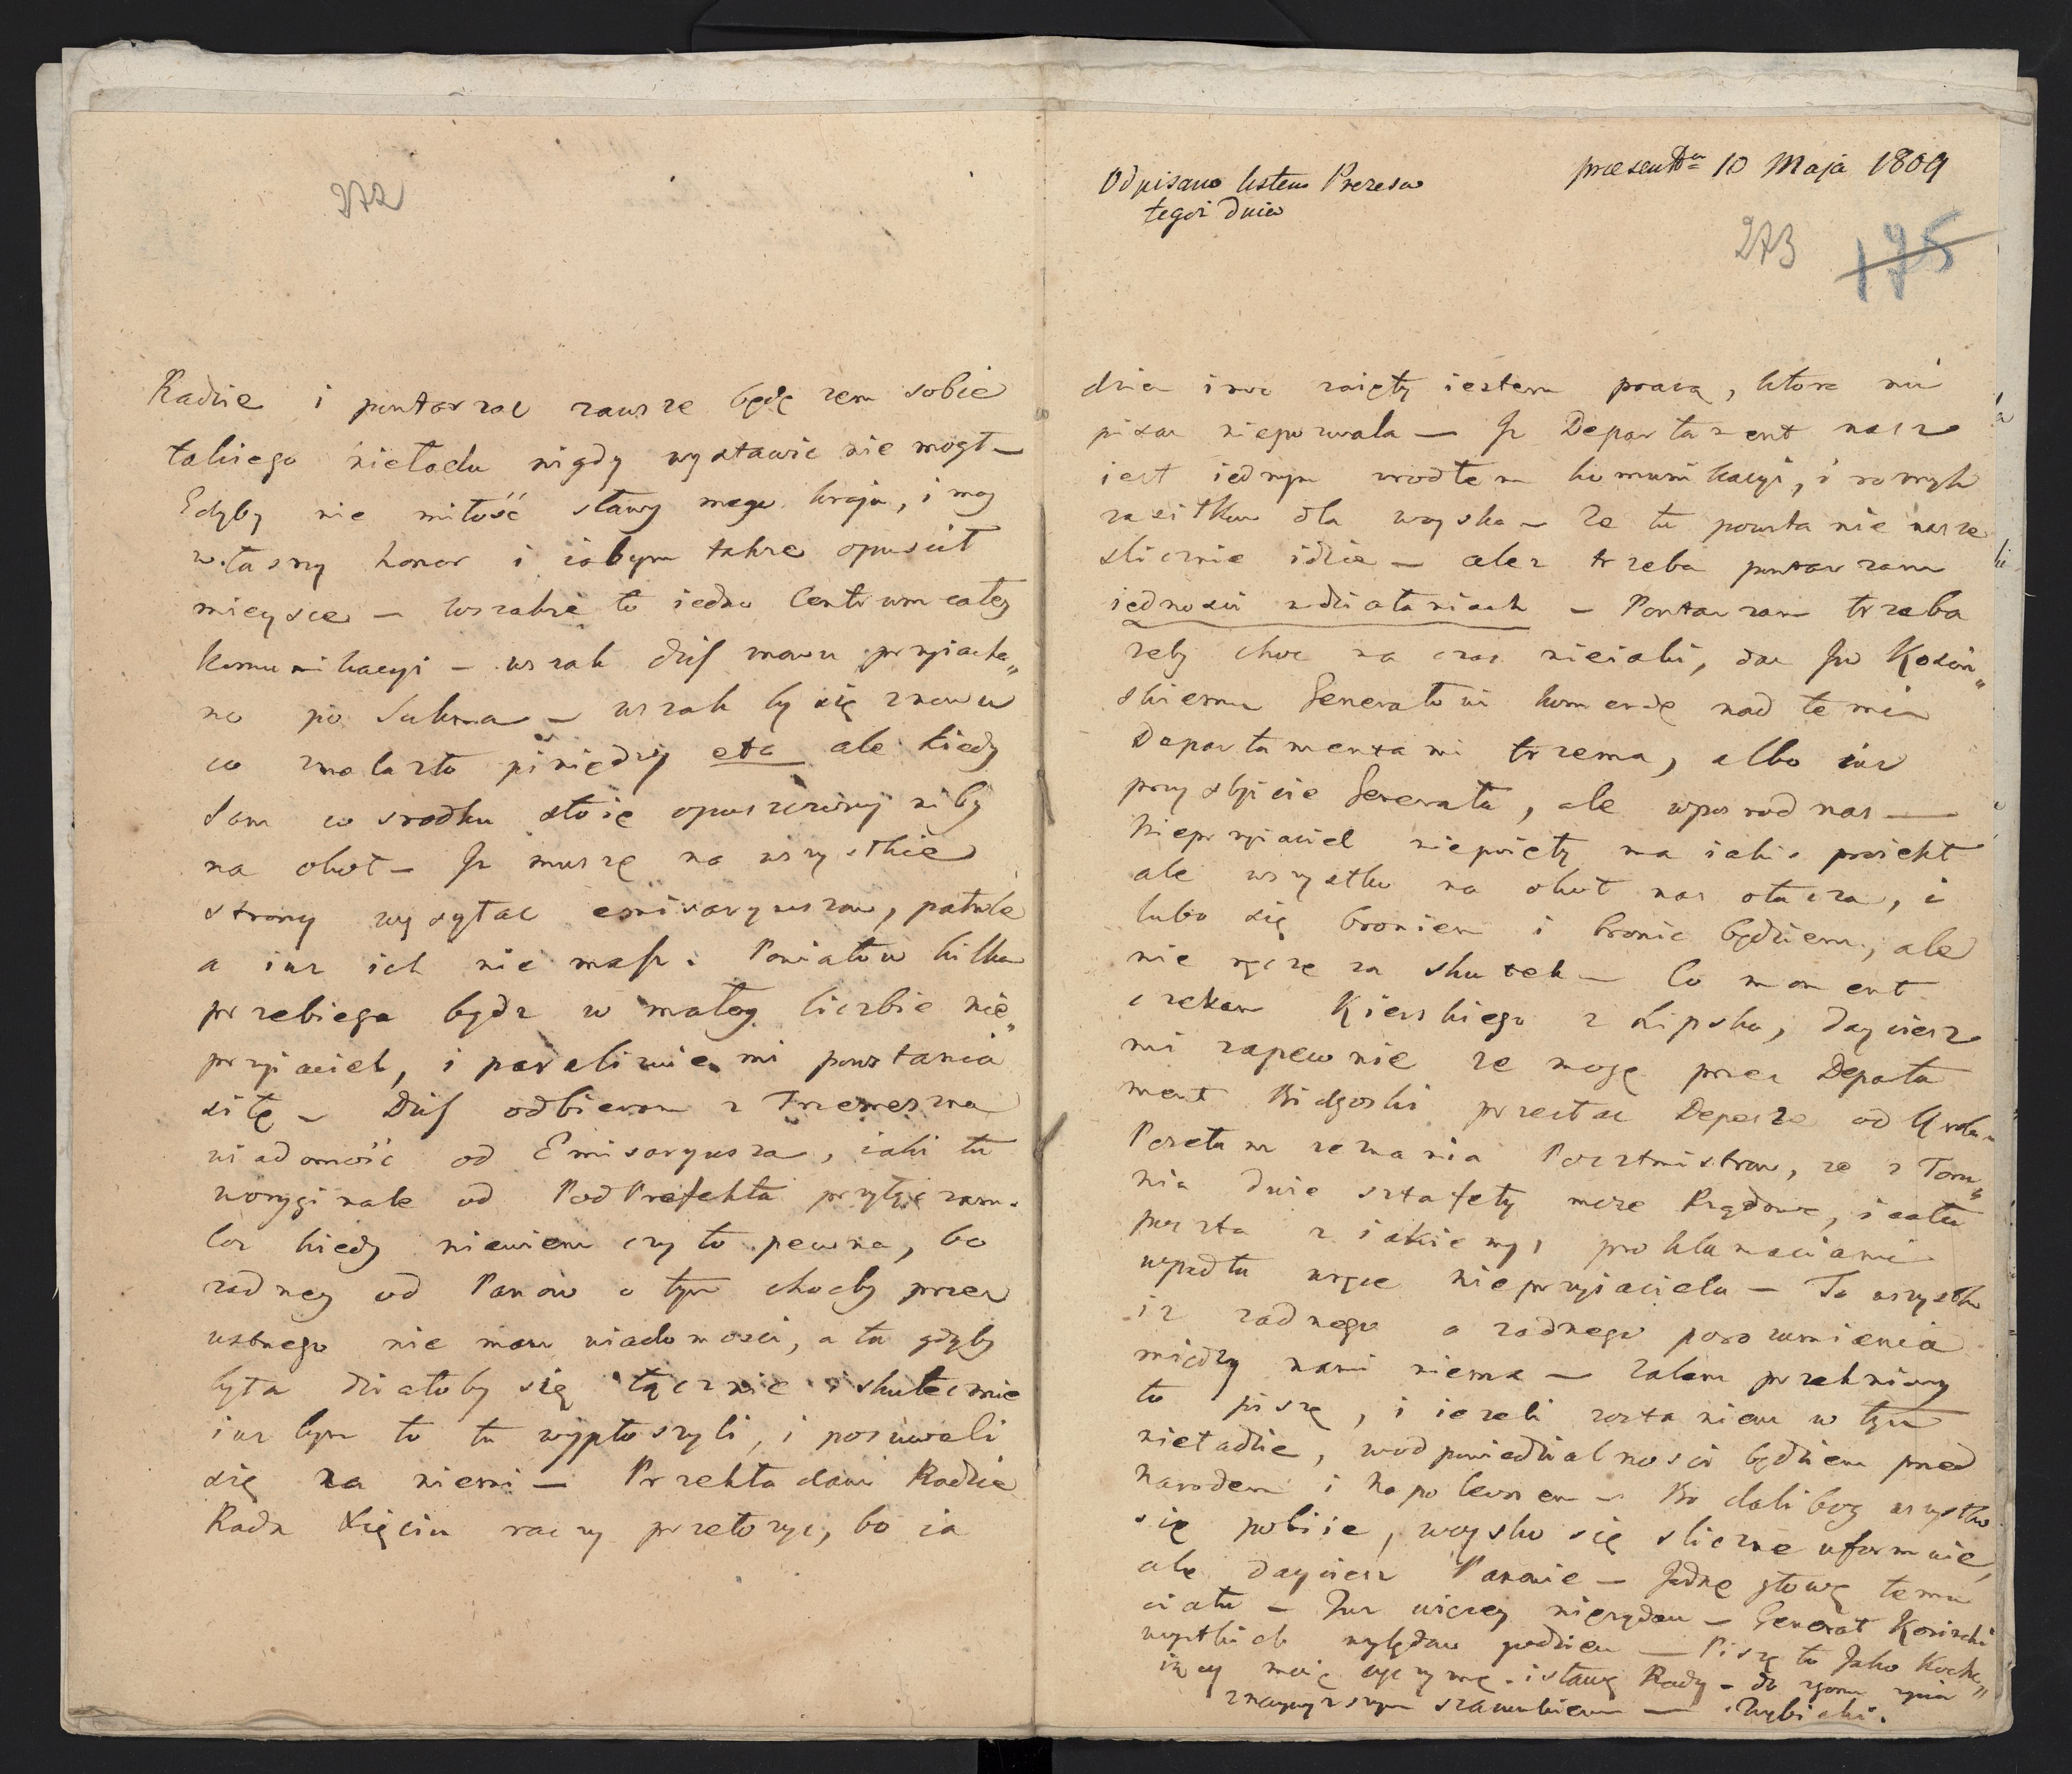 272
Radzie i powtarzac zawsze będę żem sobie
takiego nieładu nigdy wystawic nie mogł —
Gdyby nie miłość sławy mego kraju, i moy
własny honor i iabym także opuscił
mieysce — wszakże to iedno Centrum całey
Komunikacyi — wszak dziś znowu przyiecha„
no po Sukna — wszak by się znowu
co znalazło pieniędzy etc ale kiedy
sam w srodku stoię opuszczony niby
na okoł — Ja muszę na wszystkie
strony wysyłac emisaryuszow, patrole
a iuz ich nie masz. Powiatow kilka
przebiega bądz w małey liczbie nie„
przyiaciel, i paraliżuie mi powstania
siłę — Dziś odbieram z Trzemeszna
wiadomość od Emisaryusza, iaki tu
woryginale od PodPrefekta przyłączam.
Coż kiedy niewiem czy to pewna, bo
zadney od Panow o tym chocby przez
ustnego nie mam wiadomosci, a tu gdyby
była działoby się łącznie i skutecznie
iuz bysm to tu wypłoszyli, i posuwali
się za niemi — Przekładam Radzie
Rada Xięciu raczy przełozyc, bo ia
Odpisano listem Prezesa
tegoż dnia
præsent. 10 Maja 1809
273 175
dzien i noc zaięty iestem pracą, ktora mi
pisac niepozwala — Ja Departament nasz
iest iednym wrodłem komunikacyi, i nowych
zasiłkow dla woyska — Ze tu powstanie nasze
slicznie idzie — ale trzeba powtarzam
iednosci w działaniach — Powtarzam trzeba
zeby choc na czas nieiaki, dac Jw Kosin„
skiemu Generałowi komendę nad temi
Departamentami trzema, albo iuz
przyslijcie Generała, ale wposrod nas —
Nieprzyiaciel niepoięty ma iakis proiekt
ale wszystko na okoł nas otacza, i
lubo się broniem i bronic będziem, ale
nie ręczę za skutek — Co moment
czekam Kierskiego z Lipska, dayciesz
mi zapewnie ze mogę przez Departa
ment Bidgoski przesłac Depesze od Krola —
Poseła zeznania Pocztmistrza, ze z Toru„
nia dwie sztafety moze Rządowe, i cała
poczta z iakiemyś proklamaciami
wpadła wręce nieprzyiaciela — To wszystko
iz zadnego a zadnego porozumienia
między nami niema — Zalem przeknięny
to piszę, i iezeli zostaniem w tym
nieładzie, wodpowiedzialnosci będziem przed
Narodem i Napoleonem — Bo dalibog wszystko
się pobiie, woysko się sliczne uformuie,
ale dayciesz Panowie — Jednę głowę temu
ciału — Juz więcey nieządam — Generał Kosinski
wszystkich względow godzien — Piszę to Jako Kocha„
iący moię oyczyznę i sławę Rady — do zgonu zycia
znaywyzszym szacunkiem — Wybicki.